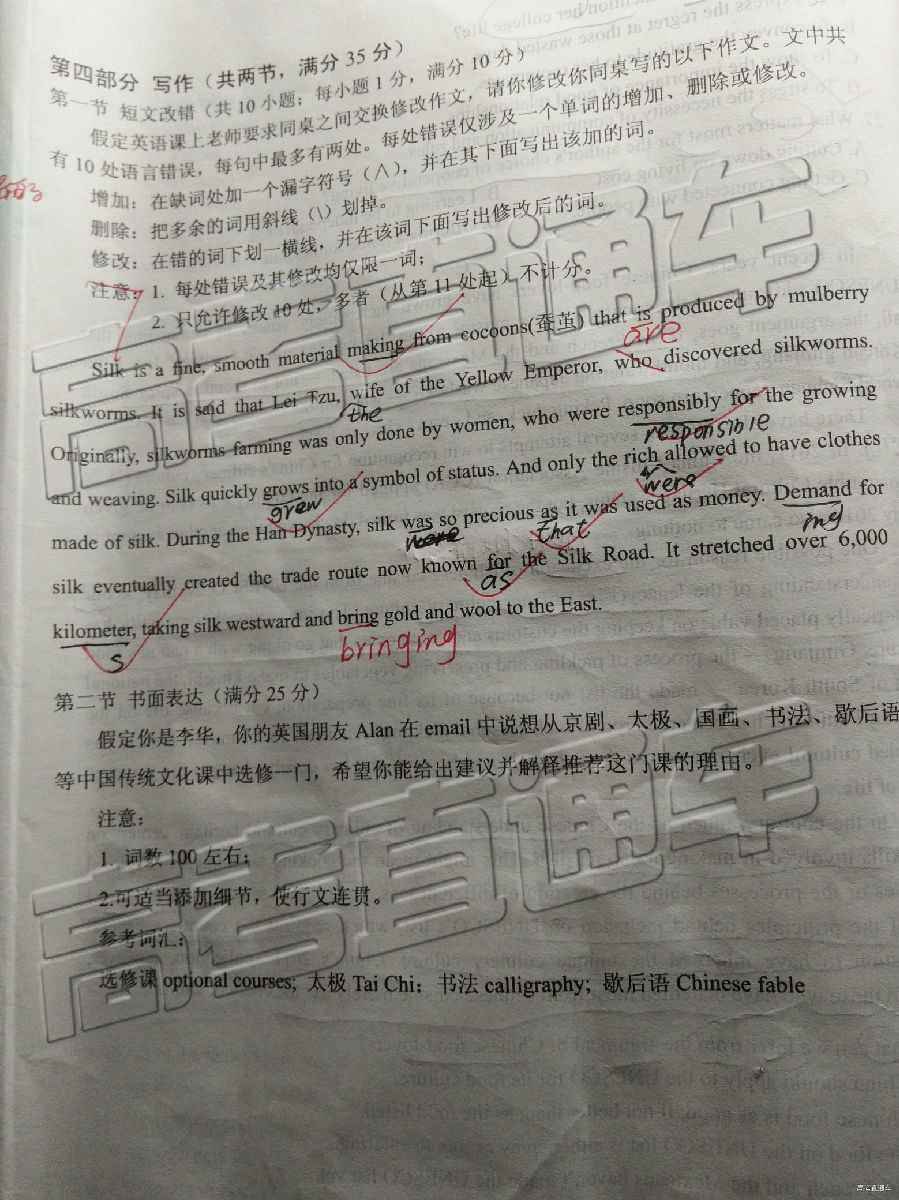 第四部分 写作（共两节，满分35分）
第一节 短文改错（共10小题；每小题1分，满分10分）
假定英语课上老师要求同桌之间交换修改作文，请你修改你同桌写的以下作文。文中共
有10处语言错误，每句中最多有两处。每处错误仅涉及一个单词的增加、删除或修改。
增加：在缺词处加一个漏字符号（∧），并在其下面写出该加的词。
删除：把多余的词用斜线（\）划掉。
修改：在错的词下划一横线，并在该词下面写出修改后的词。
注意：1. 每处错误及其修改均仅限一词；
2. 只允许修改10处，多者（从第11处起）不计分。
Silk is a fine, smooth material making from cocoons(蚕茧) that is produced by mulberry
are
silkworms. It is said that Lei Tzu, wife of the Yellow Emperor, who discovered silkworms.
the
Originally, silkworms farming was only done by women, who were responsibly for the growing
responsible
and weaving. Silk quickly grows into a symbol of status. And only the rich allowed to have clothes
grew
were
made of silk. During the Han Dynasty, silk was so precious as it was used as money. Demand for
that
ing
silk eventually created the trade route now known for the Silk Road. It stretched over 6,000
as
kilometer, taking silk westward and bring gold and wool to the East.
s
bringing
第二节 书面表达（满分25分）
假定你是李华，你的英国朋友Alan在email中说想从京剧、太极、国画、书法、歇后语
等中国传统文化课中选修一门，希望你能给出建议并解释推荐这门课的理由。
注意：
1. 词数100左右；
2.可适当添加细节，使行文连贯。
参考词汇：
选修课 optional courses; 太极 Tai Chi; 书法 calligraphy; 歇后语 Chinese fable
高考直通车
高考直通车